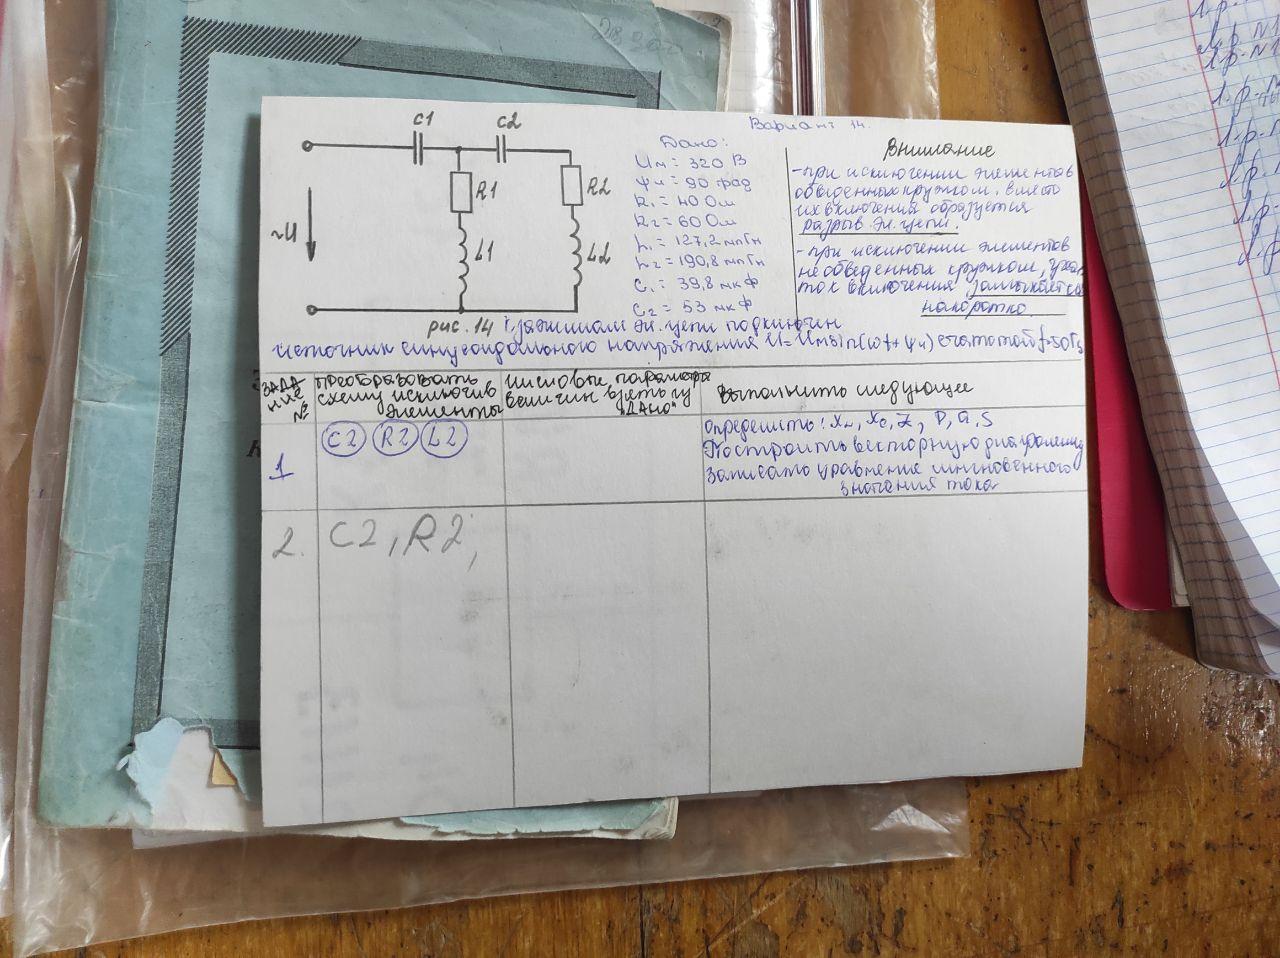 Вариант 14.
C1
C2
R1
R2
L1
L2
~U
рис. 14
Дано:
Uм = 320 В
ψu = 90 град
R1 = 40 Ом
R2 = 60 Ом
L1 = 127,2 млГн
L2 = 190,8 млГн
C1 = 39,8 мкф
C2 = 53 мкф
Внимание
- при исключении элементов
обведенных кружком, вместо
их включения образуется
разрыв эл. цепи.
- при исключении элементов
не обведенных кружком,
ток включения замыкается
накоротко
К зажимам эл. цепи подключен
источник синусоидального напряжения U=Uмsin(ωt+ψu) с частотой f=50Гц
ЗАДАНИЕ №
преобразовать
схему исключив
элементы
числовые параметры
величин взять из
"ДАНО"
Выполнить следующее
1
C2 R2 L2
Определить: XL, Xc, Z, P, Q, S
Построить векторную диаграмму
Записать уравнение мгновенного
значения тока
2. C2, R2,